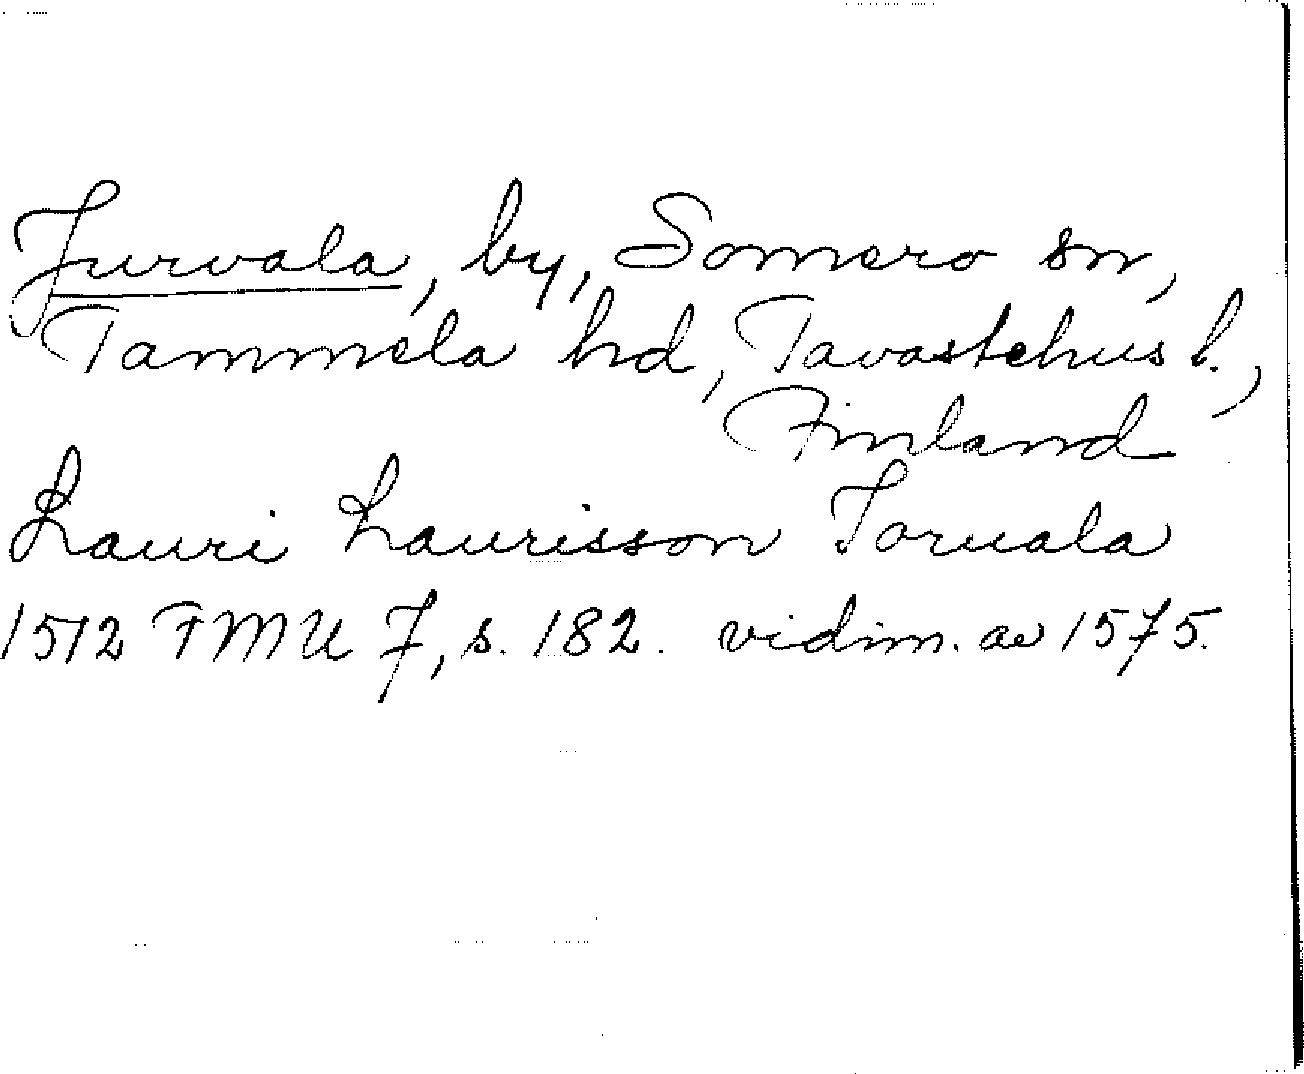 Jurvala, by, Somero sn,
Tammela hd, Tavastehus l.,
Finland
Lauri Laurisson Toruala
1512 FMU 7, s. 182. vidim. av 1575.